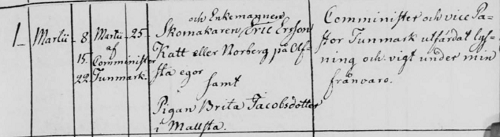 1 Martii 8 15 22
Martii 25 af Comminister Tunmark
och Enkemannen
Skomakaren Eric Ersson
Katt eller Norberg på Ulf-
sta egor
samt
Pigan Brita Jacobsdotter
i Mallsta.
Comminister och vice Pa-
stor Tunmark utfärdat lys-
ning och vigt under min
frånvaro.